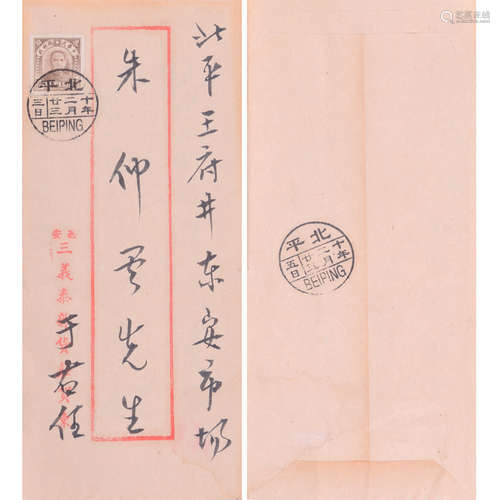 北平王府井东安市场
朱仲雲先生
西安
三義泰
于右任
北平
十年
二月
廿三
三日
BEIPING
北平
十年
二月
廿五
五日
BEIPING